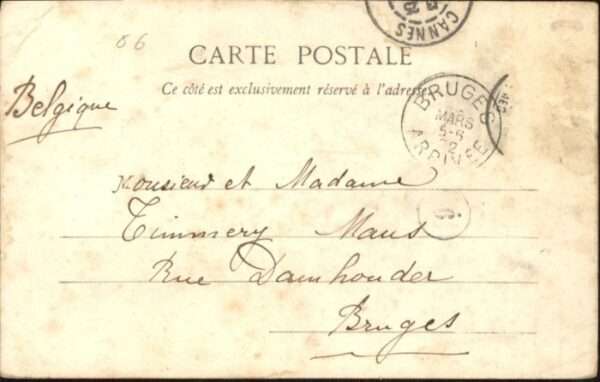 06
CANNES
CARTE POSTALE
Ce côté est exclusivement réservé à l'adresse
Belgique
BRUGES
MARS
5-6
ARRIVEE
Monsieur et Madame
Timmery Maus
Rue Damhouder
Bruges